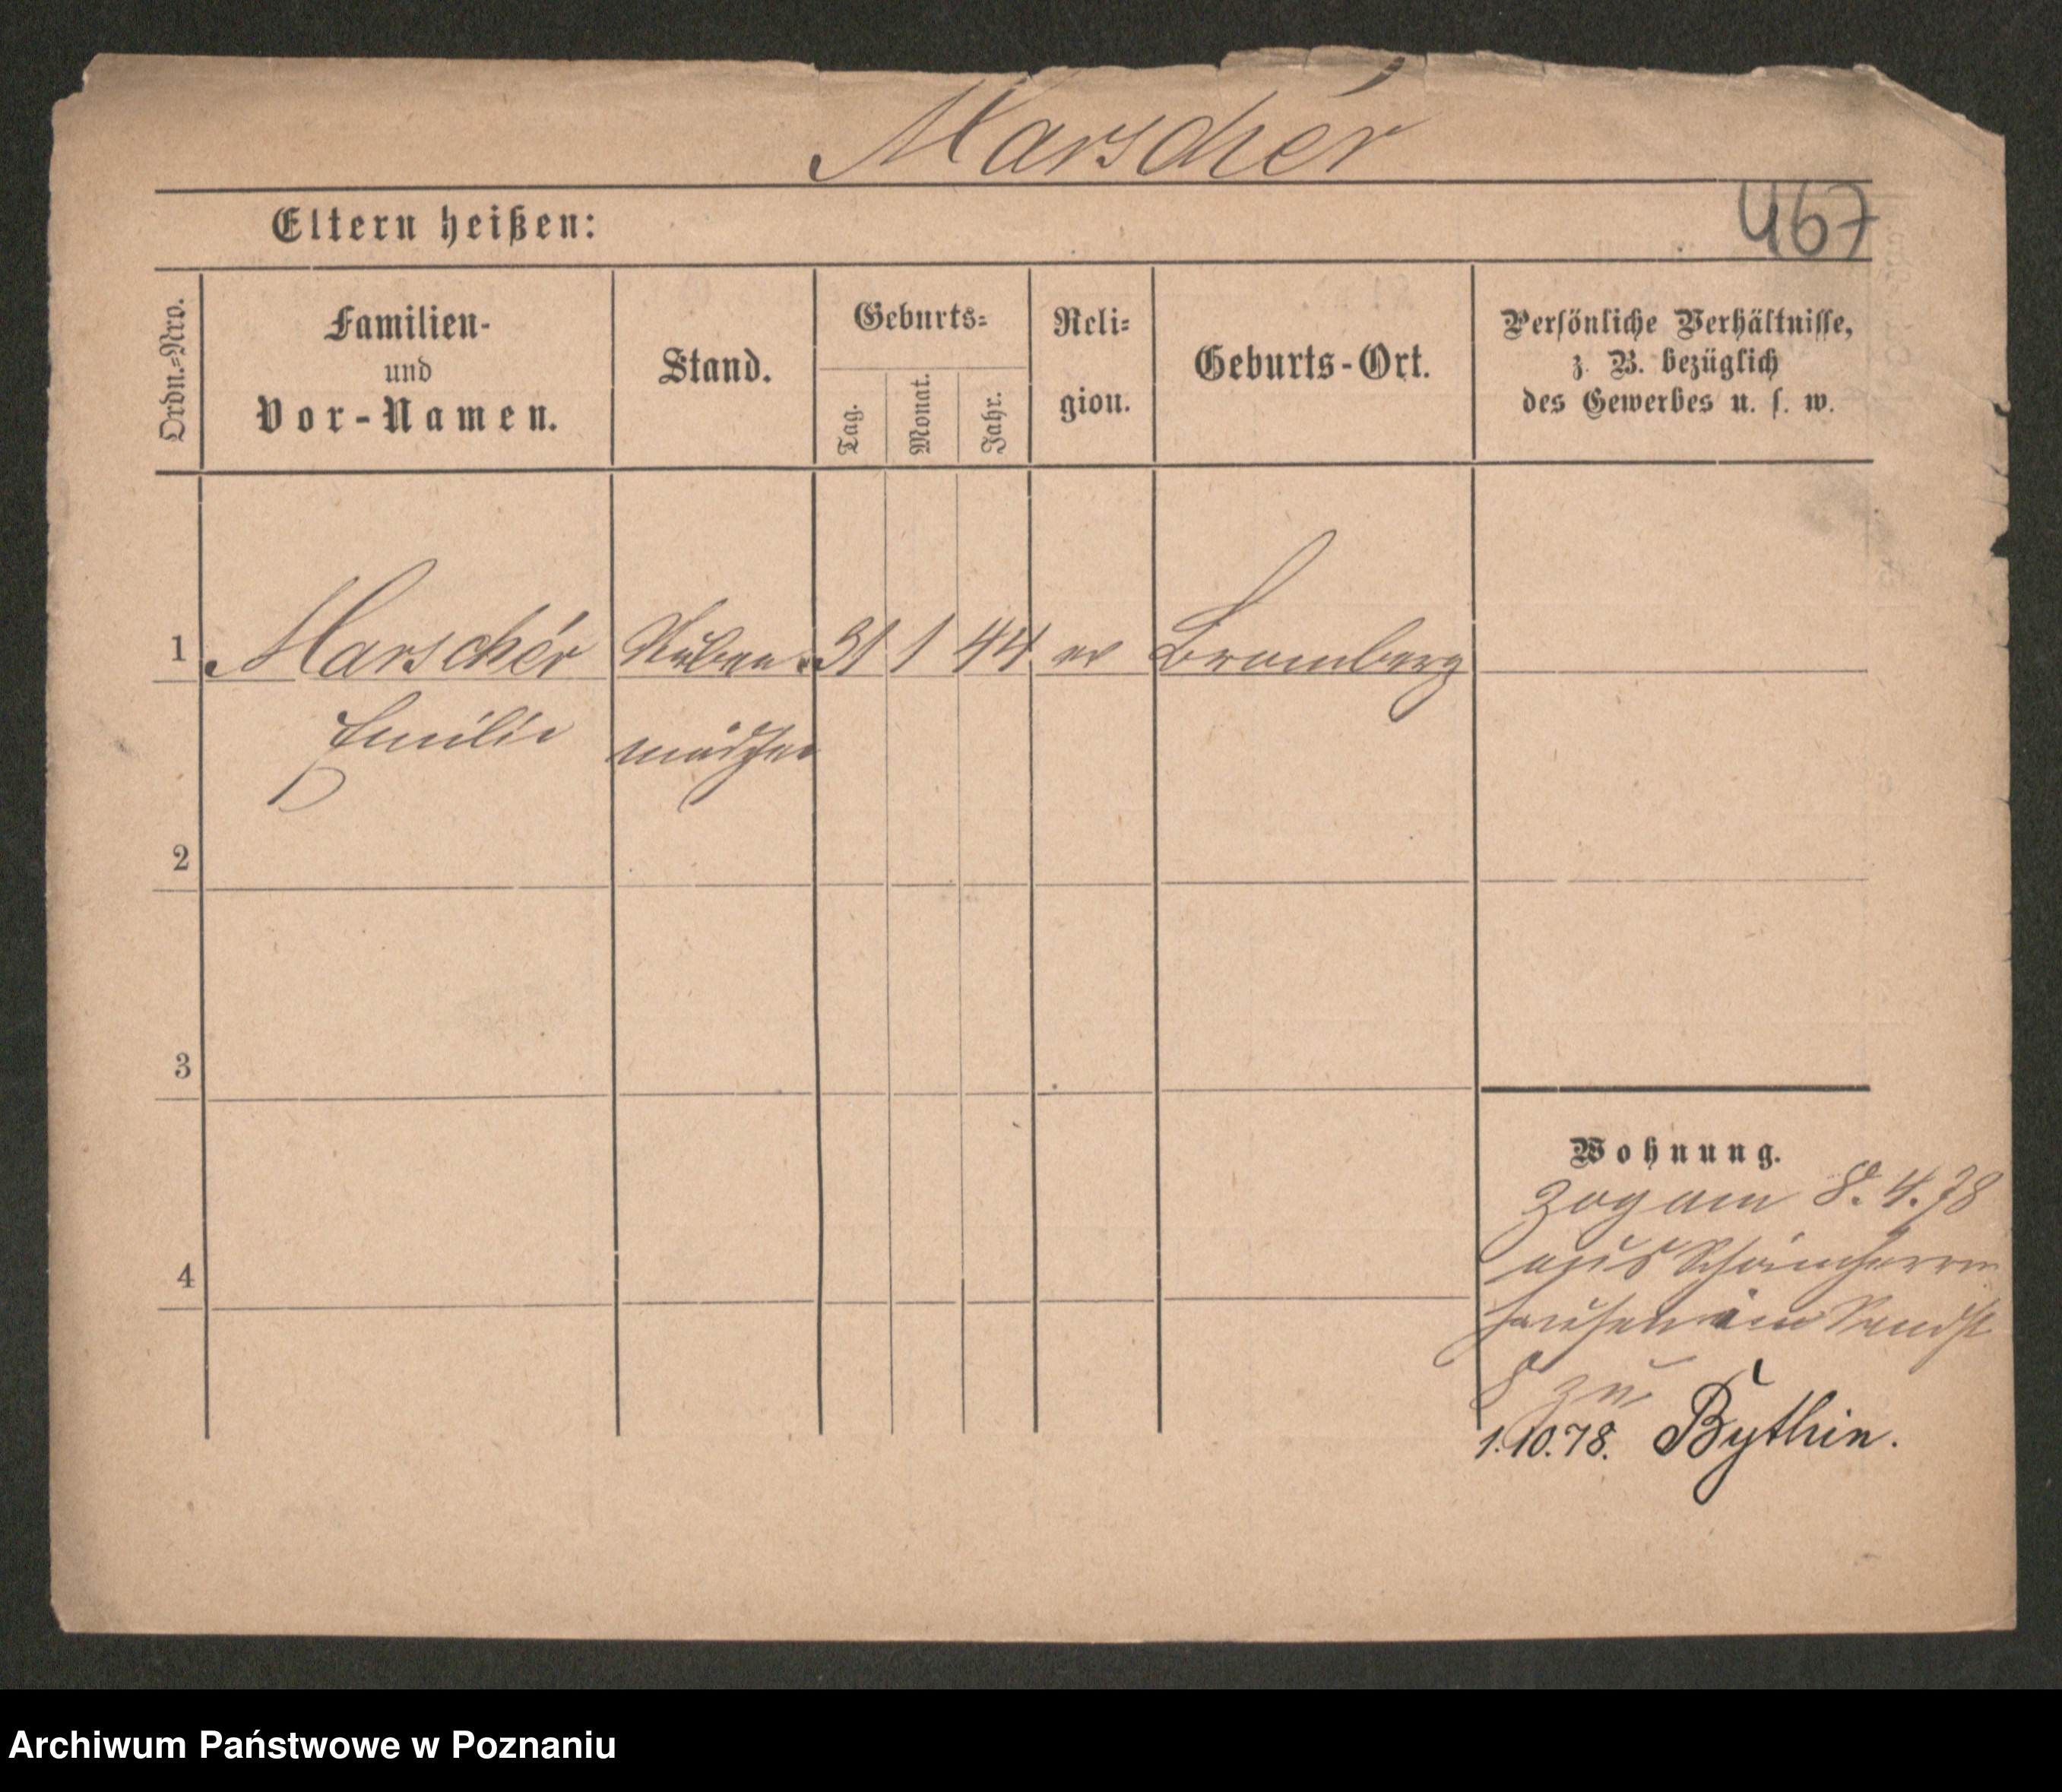 Marschér
467
Eltern heißen:
Ordn.=Nro.
Familien-
und
Vor-Namen.
Stand.
Geburts=
Tag.
Monat.
Jahr.
Reli=
gion.
Geburts-Ort.
Persönliche Verhältnisse,
z. B. bezüglich
des Gewerbes u. s. w.
1 Marschér Stuben 31 1 44 ev Bromberg
Emilie mädchen
2
3
4
Wohnung.
Zog am 8. 4. 78
aus
hausen
8 zu
1.10.78. Bythin.
Archiwum Państwowe w Poznaniu